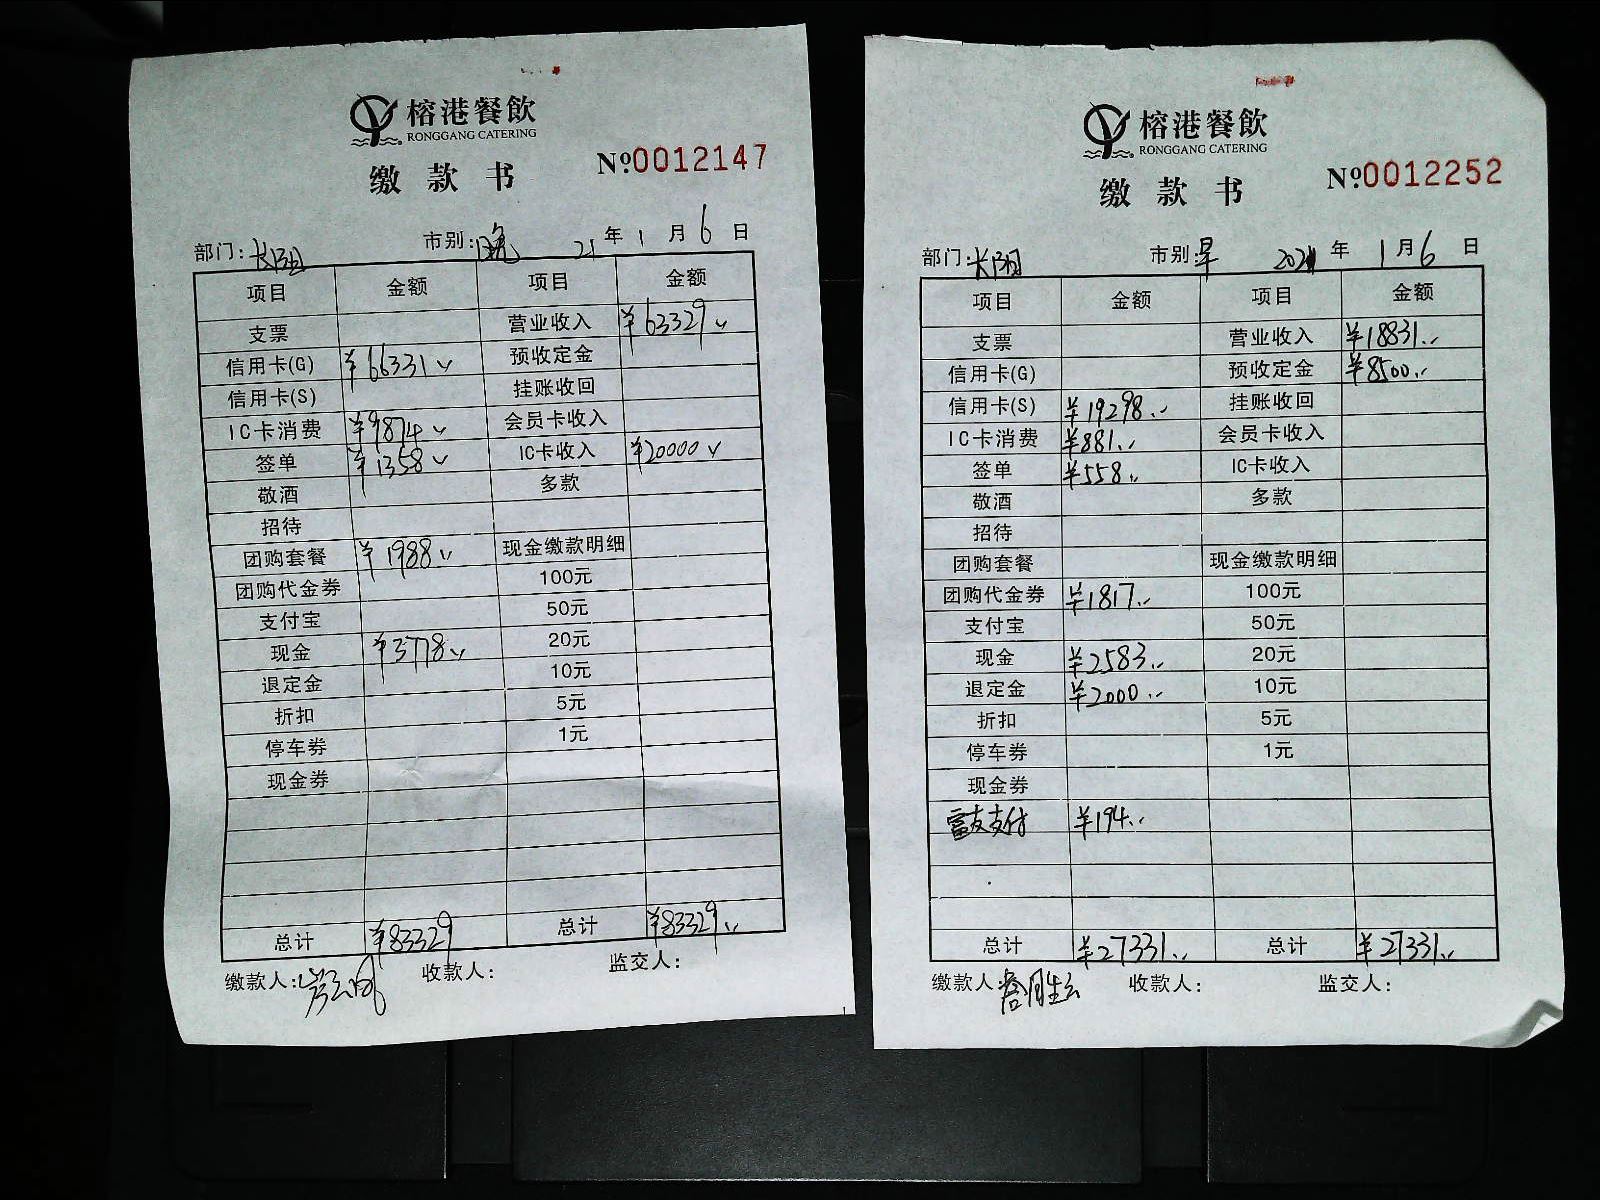 榕港餐飲
RONGGANG CATERING
缴款书 №0012147
部门:长阳 市别:晚 21年1月6日
项目 金额 项目 金额
支票 营业收入 ¥63329
信用卡(G) ¥66331 预收定金
信用卡(S) 挂账收回
IC卡消费 ¥9874 会员卡收入
签单 ¥1358 IC卡收入 ¥20000
敬酒 多款
招待
团购套餐 ¥1988 现金缴款明细
团购代金券 100元
支付宝 50元
现金 ¥3778 20元
退定金 10元
折扣 5元
停车券 1元
现金券
总计 ¥83329 总计 ¥83329
缴款人: 收款人: 监交人:
榕港餐飲
RONGGANG CATERING
缴款书 №0012252
部门:长阳 市别:早 2021年1月6日
项目 金额 项目 金额
支票 营业收入 ¥18831
信用卡(G) 预收定金 ¥8500
信用卡(S) ¥19298 挂账收回
IC卡消费 ¥881 会员卡收入
签单 ¥558 IC卡收入
敬酒 多款
招待
团购套餐 现金缴款明细
团购代金券 ¥1817 100元
支付宝 50元
现金 ¥2583 20元
退定金 ¥2000 10元
折扣 5元
停车券 1元
现金券
富友支付 ¥194
总计 ¥27331 总计 ¥27331
缴款人: 收款人: 监交人: